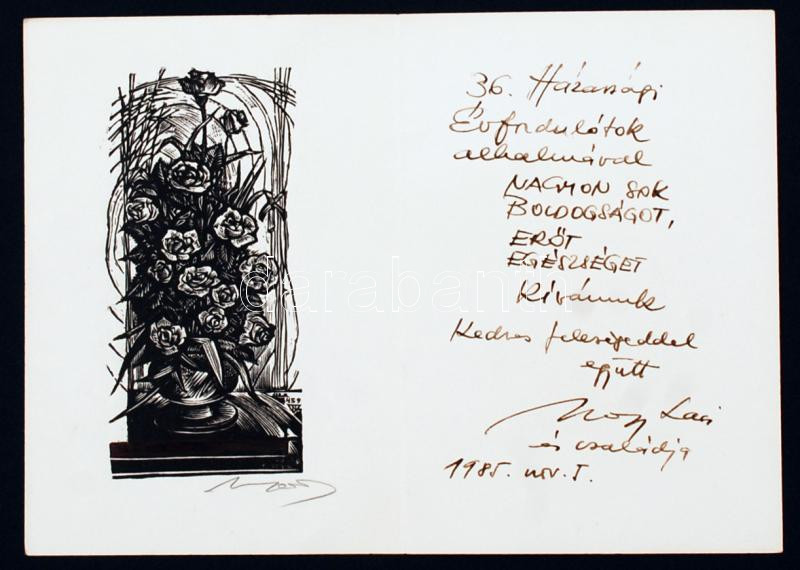 36. Házassági
Évfordulótok
alkalmával
NAGYON SOK
BOLDOGSÁGOT,
ERŐT
EGÉSZSÉGET
Kívánunk
Kedves feleségeddel
együtt
Nagy Laci
és családja
1985. nov. 5.
darabanth